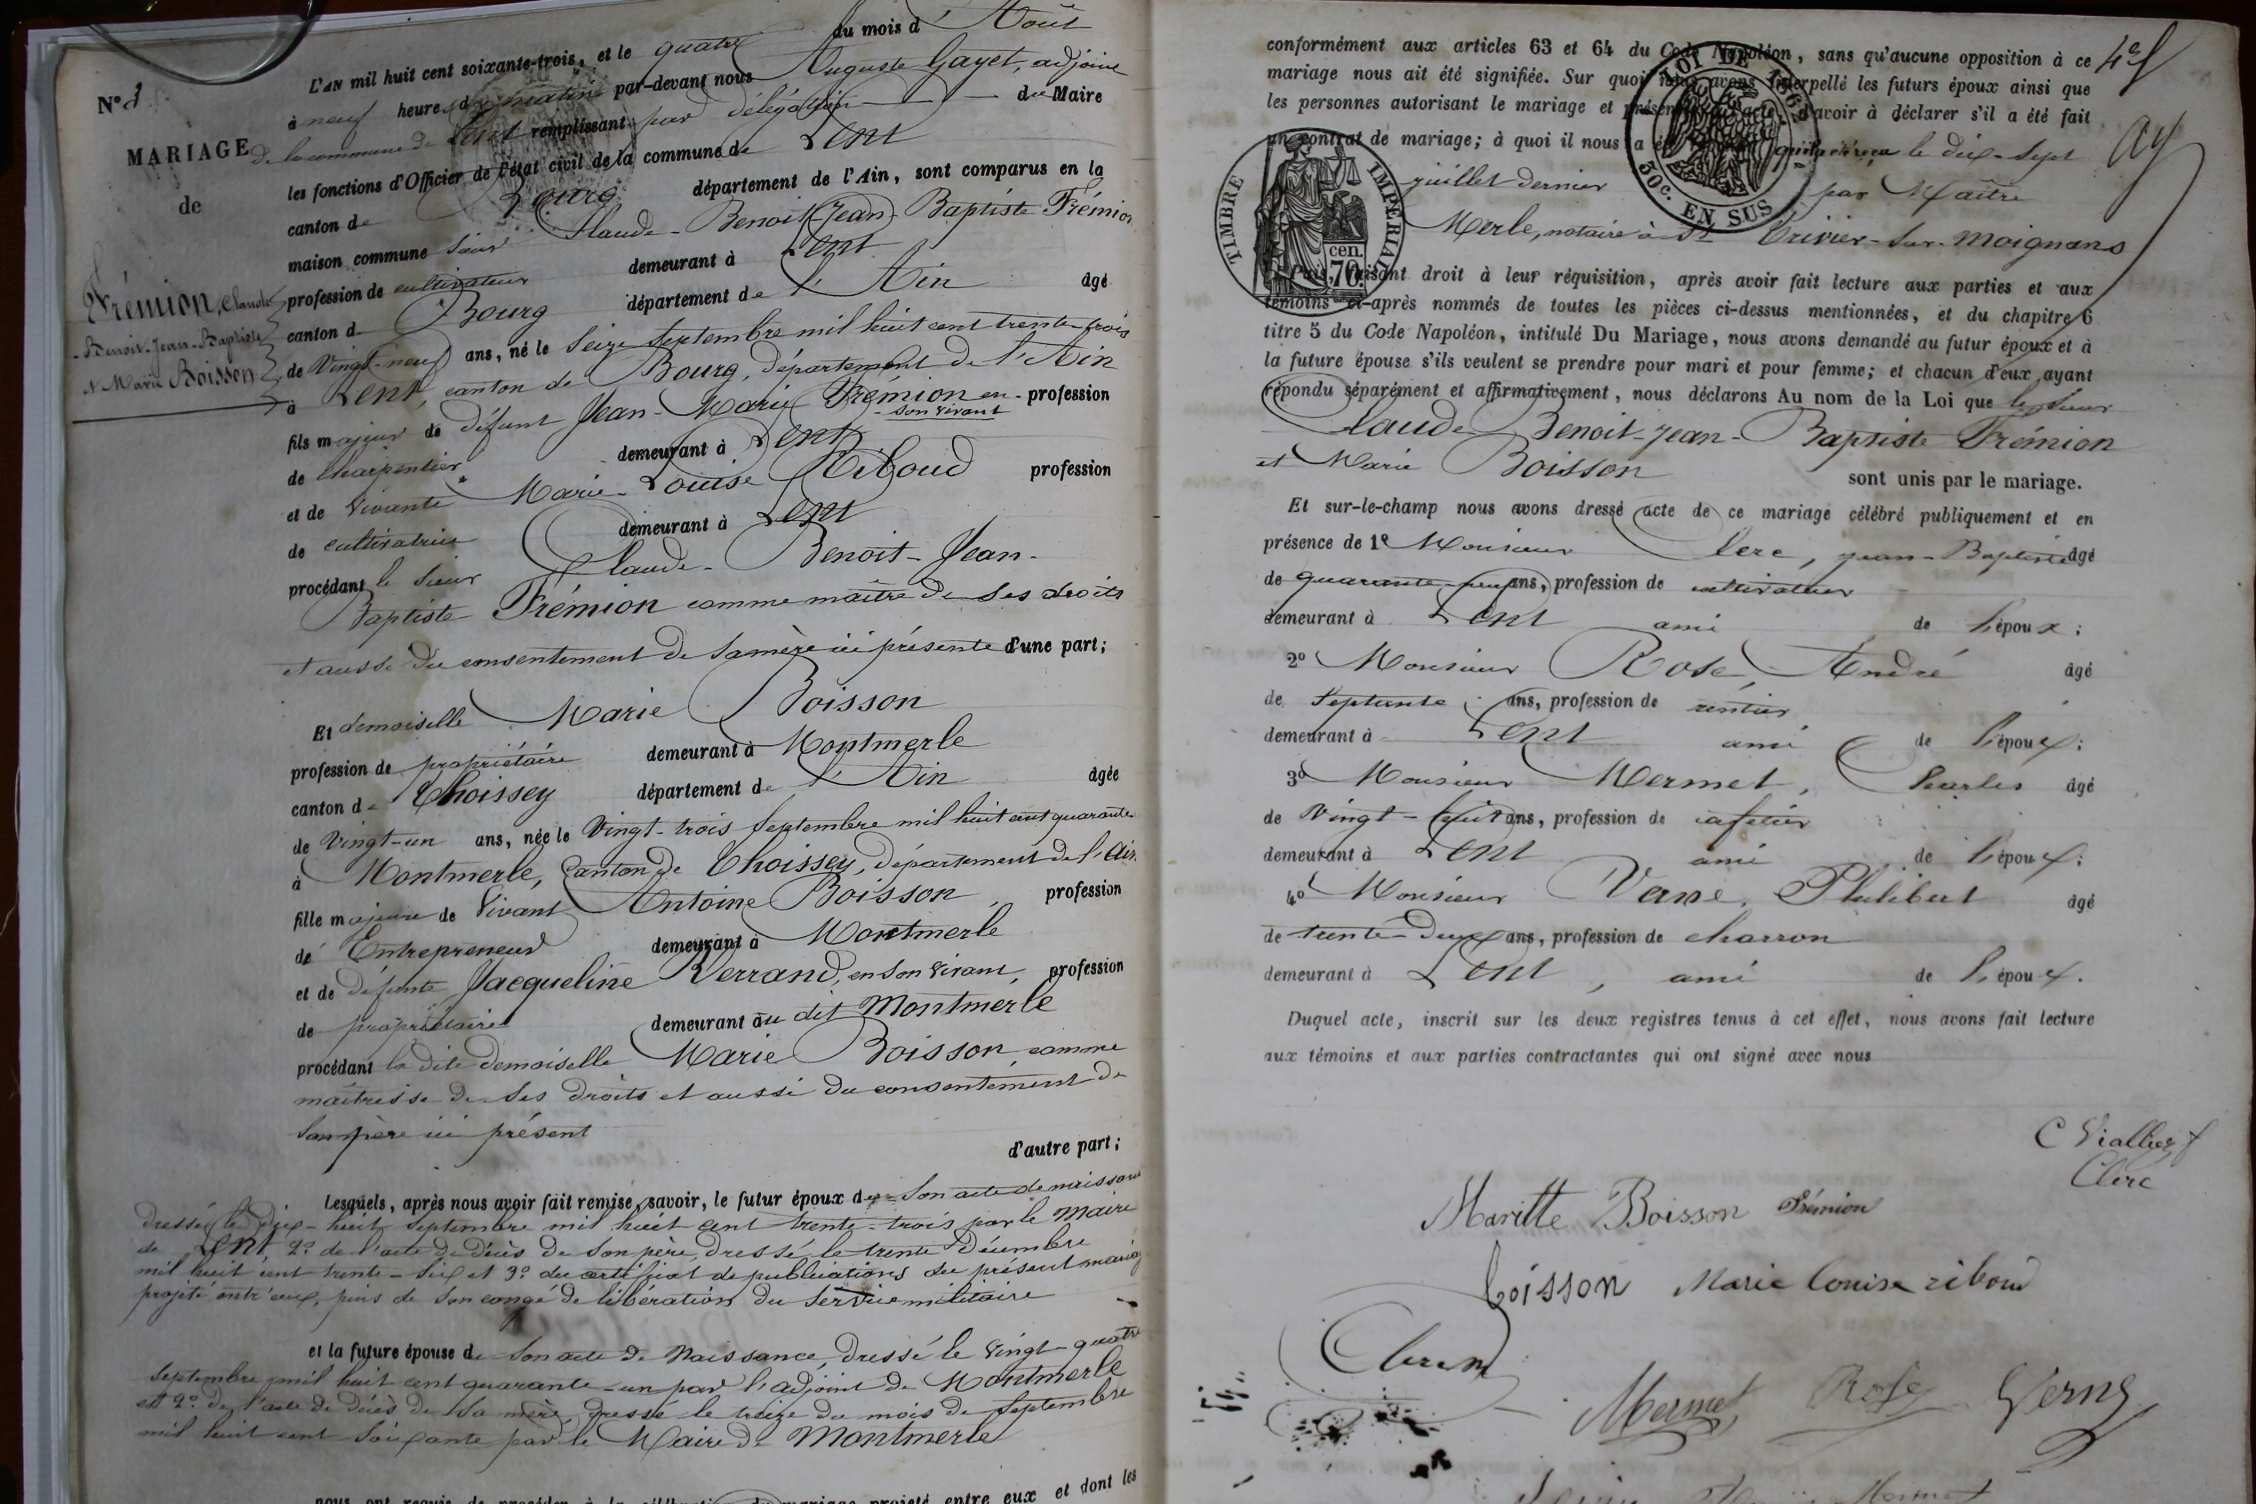 N° 3
MARIAGE
de
Frémion, Claude
-Benoit-Jean-Baptiste
et Marie Boisson
L'AN mil huit cent soixante-trois, et le quatre du mois d'Août
à neuf heures du matin par-devant nous Auguste Gayet, adjoint du Maire
de la commune de Lent remplissant par délégation
les fonctions d'Officier de l'état civil de la commune de Lent
canton de Bourg département de l'Ain, sont comparus en la
maison commune sieur Claude-Benoit-Jean-Baptiste Frémion
profession de cultivateur demeurant à Lent
canton de Bourg département de l'Ain âgé
de Vingt-neuf ans, né le Seize Septembre mil huit cent trente-trois
à Lent, canton de Bourg, Département de l'Ain
fils majeur de défunt Jean-Marie Frémion en son vivant profession
de charpentier demeurant à Lent
et de vivante Marie-Louise Riboud profession
de cultivatrice demeurant à Lent
procédant le sieur Claude-Benoit-Jean-
Baptiste Frémion comme maître de ses droits
et aussi du consentement de sa mère ici présente d'une part;
Et demoiselle Marie Boisson
profession de propriétaire demeurant à Montmerle
canton de Thoissey département de l'Ain âgée
de Vingt-un ans, née le Vingt-trois Septembre mil huit cent quarante
à Montmerle, Canton de Thoissey, département de l'Ain
fille majeure de Vivant Antoine Boisson profession
de Entrepreneur demeurant à Montmerle
et de défunte Jacqueline Verrand, en son vivant profession
de propriétaire demeurant au dit Montmerle
procédant la dite demoiselle Marie Boisson comme
maîtresse de ses droits et aussi du consentement de
son père ici présent
d'autre part;
Lesquels, après nous avoir fait remise, savoir, le futur époux de son acte de naissance
dressé le dix-huit Septembre mil huit cent trente-trois par le Maire
de Lent, 2° de l'acte de décès de son père, dressé le trente Décembre
mil huit cent trente-six et 3° du certificat de publications du présent mariage
projeté entr'eux, puis de son congé de libération du service militaire
et la future épouse de son acte de Naissance, dressé le Vingt-quatre
Septembre mil huit cent quarante-un par l'adjoint de Montmerle
et 2° de l'acte de décès de sa mère, dressé le treize du mois de Septembre
mil huit cent soixante par le Maire de Montmerle
nous ont requis de procéder à la célébration du mariage projeté entre eux et dont les
conformément aux articles 63 et 64 du Code Napoléon, sans qu'aucune opposition à ce
mariage nous ait été signifiée. Sur quoi nous avons interpellé les futurs époux ainsi que
les personnes autorisant le mariage et présentes à l'acte, d'avoir à déclarer s'il a été fait
un contrat de mariage; à quoi il nous a été le dix-sept
juillet dernier par Maître
Merle, notaire à St Trivier-sur-Moignans
LOI DE 1862
50c. EN SUS
TIMBRE IMPERIAL
cen. 70.
Puis, faisant droit à leur réquisition, après avoir fait lecture aux parties et aux
témoins ci-après nommés de toutes les pièces ci-dessus mentionnées, et du chapitre 6
titre 5 du Code Napoléon, intitulé Du Mariage, nous avons demandé au futur époux et à
la future épouse s'ils veulent se prendre pour mari et pour femme; et chacun d'eux ayant
répondu séparément et affirmativement, nous déclarons Au nom de la Loi que le sieur
Claude-Benoit-Jean-Baptiste Frémion
et Marie Boisson
sont unis par le mariage.
Et sur-le-champ nous avons dressé acte de ce mariage célébré publiquement et en
présence de 1° Monsieur Clerc, Jean-Baptiste âgé
de quarante-neuf ans, profession de cultivateur
demeurant à Lent ami de l'époux;
2° Monsieur Rose, André âgé
de Septante ans, profession de rentier
demeurant à Lent ami de l'époux;
3° Monsieur Mermet, Charles âgé
de Vingt-huit ans, profession de cafetier
demeurant à Lent ami de l'époux;
4° Monsieur Verne, Philibert âgé
de trente-deux ans, profession de charron
demeurant à Lent, ami de l'époux.
Duquel acte, inscrit sur les deux registres tenus à cet effet, nous avons fait lecture
aux témoins et aux parties contractantes qui ont signé avec nous
Clerc
Mariette Boisson Frémion
boisson Marie louise riboud
Mermet Rose Verne